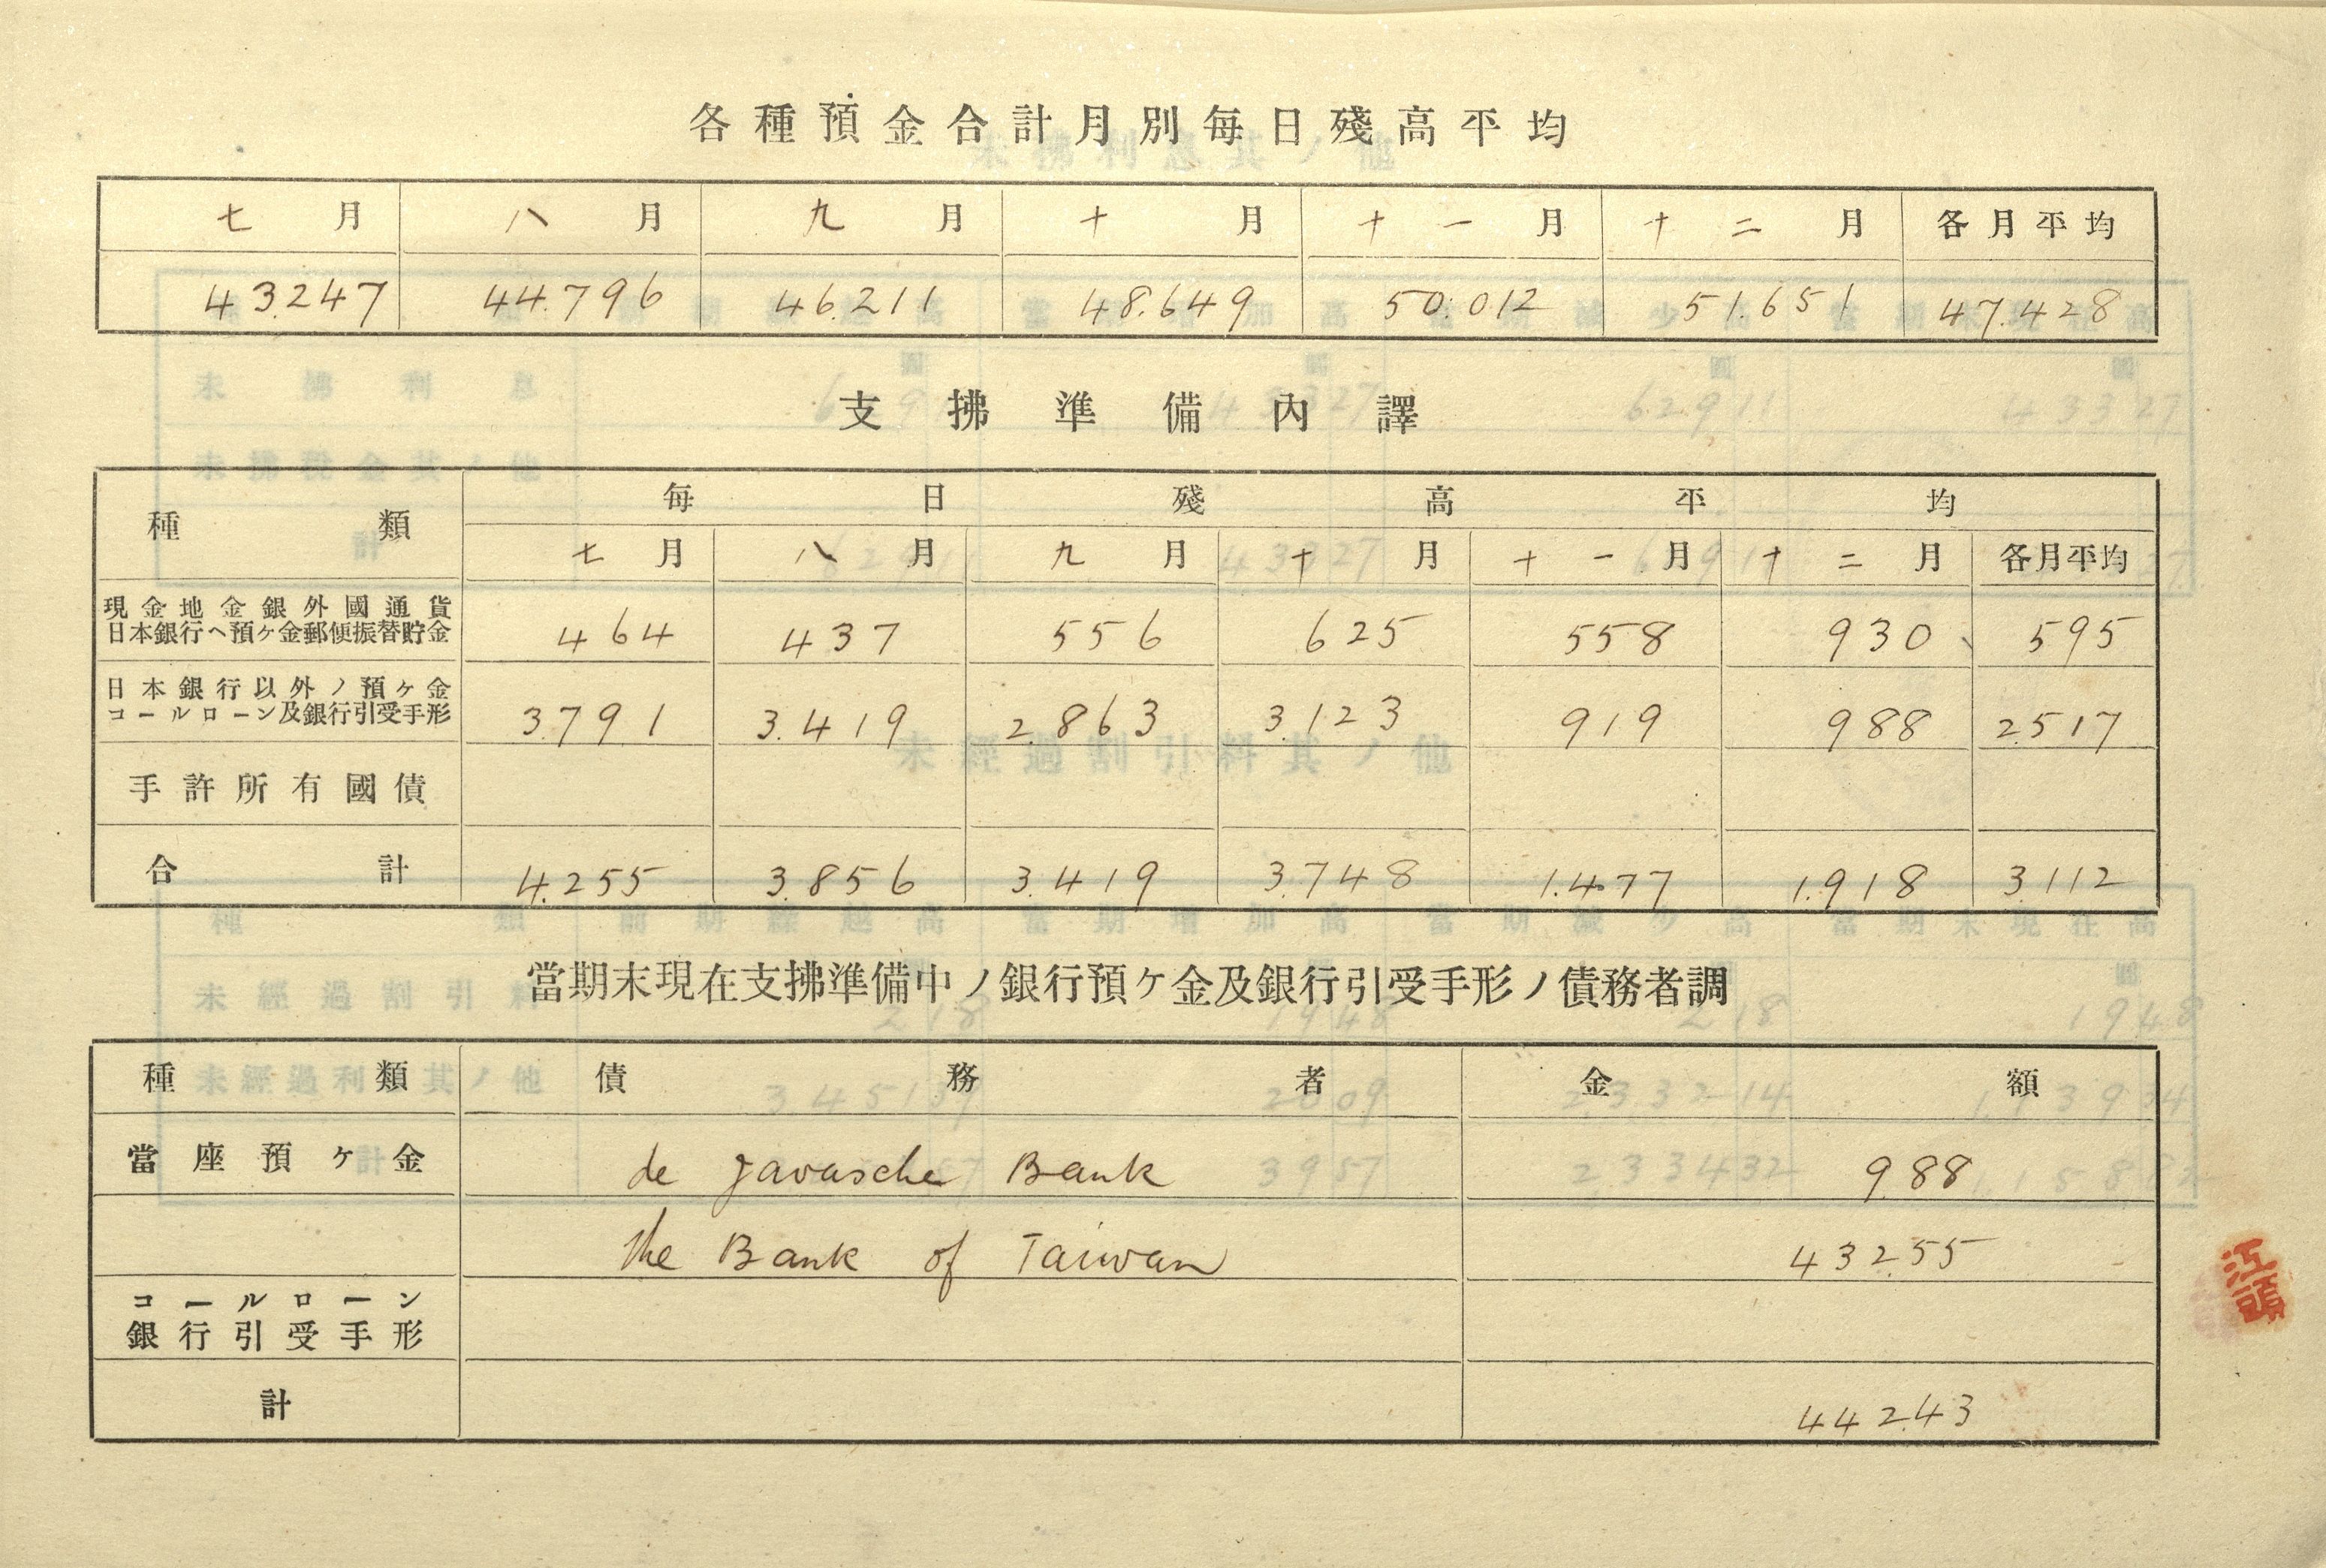 各種預金合計月別每日殘高平均
七月 八月 九月 十月 十一月 十二月 各月平均
43.247 44.796 46.211 48.649 50.012 51.651 47.428
支拂準備內譯
種類 每日殘高平均
七月 八月 九月 十月 十一月 十二月 各月平均
現金地金銀外國通貨
日本銀行ヘ預ヶ金郵便振替貯金 464 437 556 625 558 930 595
日本銀行以外ノ預ヶ金
コールローン及銀行引受手形 3.791 3.419 2.863 3.123 919 988 2.517
手許所有國債
合計 4.255 3.856 3.419 3.748 1.477 1.918 3.112
當期末現在支拂準備中ノ銀行預ケ金及銀行引受手形ノ債務者調
種類 債務者 金額
當座預ヶ金 de Javasche Bank 9.88
The Bank of Taiwan 432.55
コールローン
銀行引受手形
計 442.43
江頭